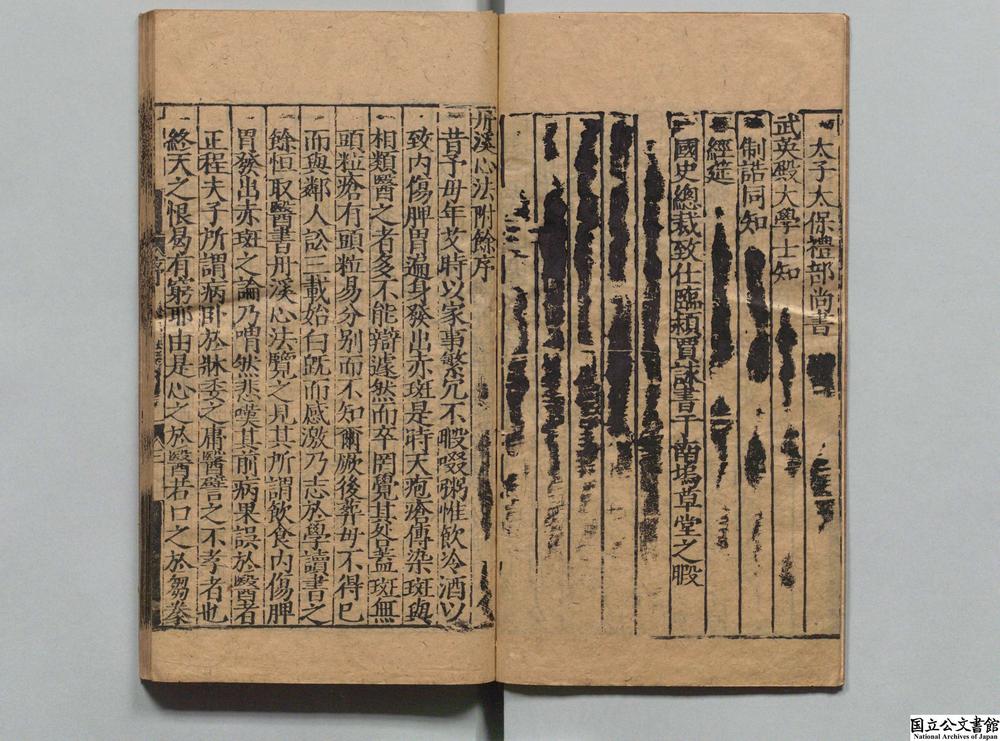 太子太保禮部尚書
武英殿大學士知
制誥同知
經筵
國史總裁致仕臨潁賈詠書于南塢草堂之暇
丹溪心法附餘序
昔予母年艾時以家事繁冗不暇啜粥惟飲冷酒以
致内傷脾胃遍身發出赤斑是時天疱瘡傳染斑與
相類醫之者多不能辯遽然而卒罔覺其咎蓋斑無
頭粒瘡有頭粒易分別而不知爾厥後葬母不得已
而與鄰人訟三載始白既而感激乃志於學讀書之
餘恒取醫書丹溪心法覽之見其所謂飲食内傷脾
胃發出赤斑之論乃喟然悲嘆其前病果誤於醫者
正程夫子所謂病卧於牀委之庸醫譬之不孝者也
終天之恨曷有窮耶由是心之於醫若口之於芻豢
序
国立公文書館
National Archives of Japan